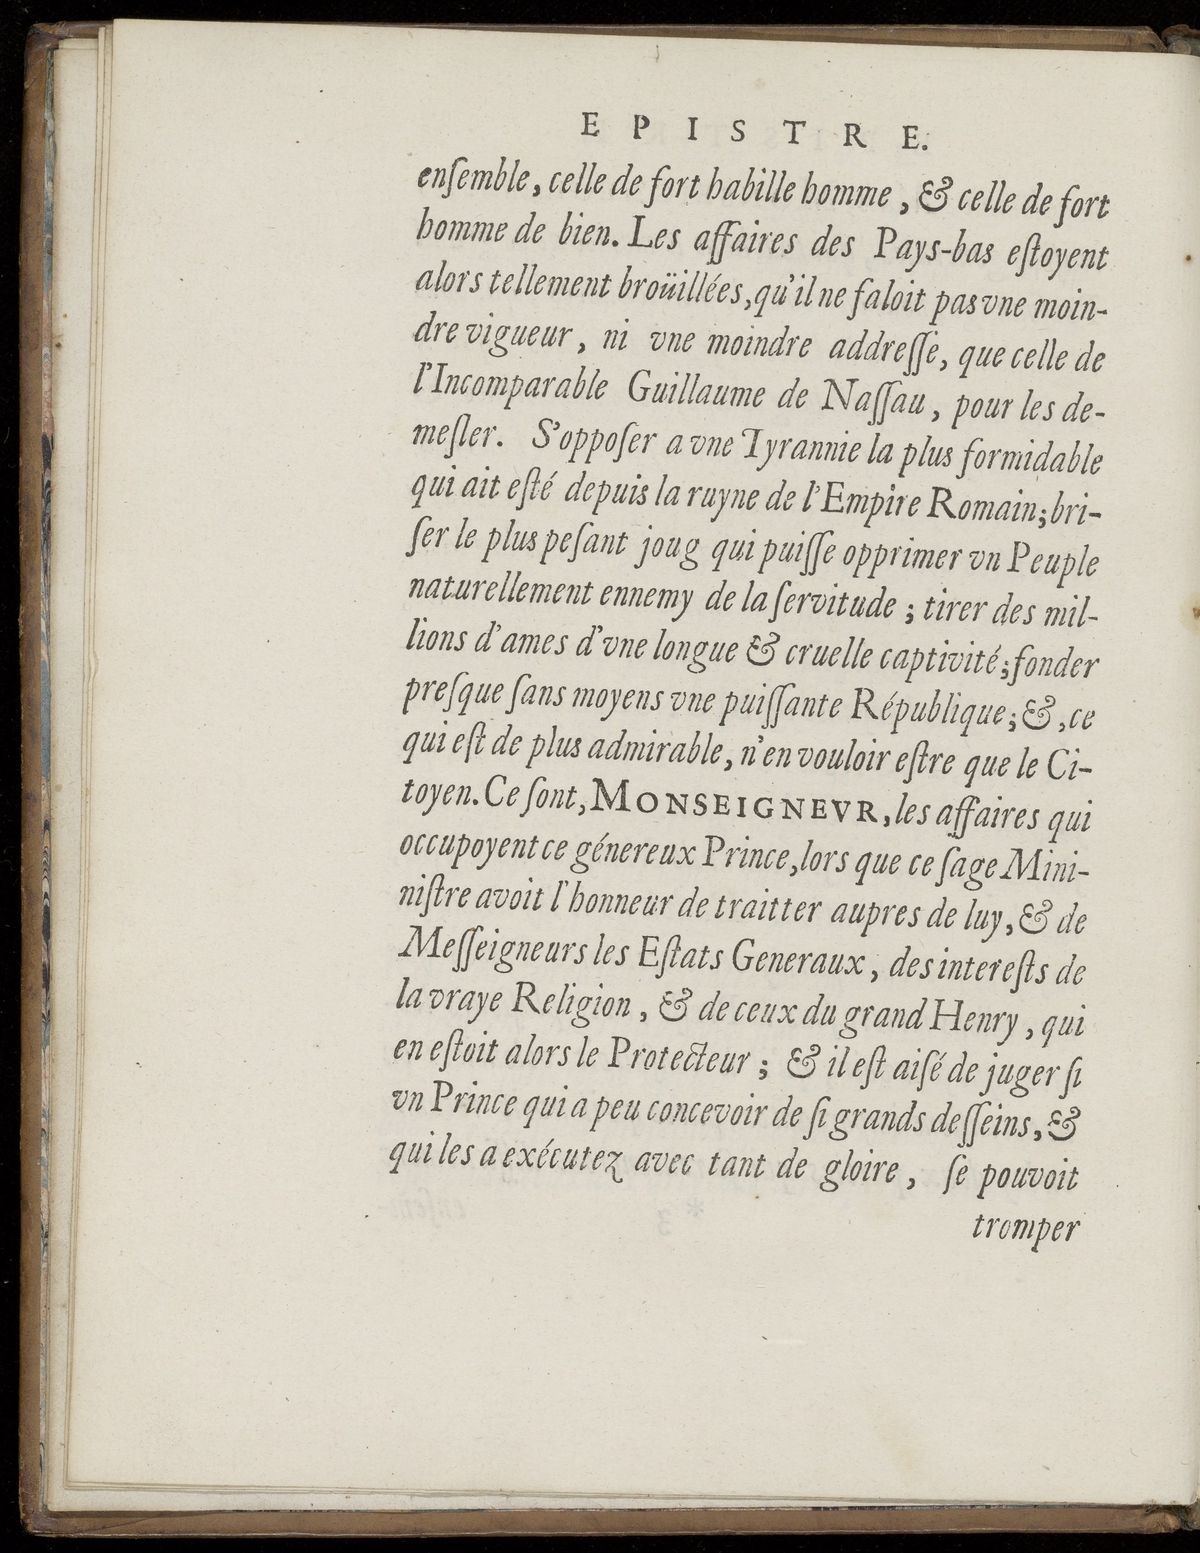 EPISTRE.
enſemble, celle de fort habille homme, & celle de fort
homme de bien. Les affaires des Pays-bas eſtoyent
alors tellement broüillées, qu'il ne faloit pas vne moin-
dre vigueur, ni vne moindre addreſſe, que celle de
l'Incomparable Guillaume de Naſſau, pour les de-
meſler. S'oppoſer a vne Tyrannie la plus formidable
qui ait eſté depuis la ruyne de l'Empire Romain; bri-
ſer le plus peſant joug qui puiſſe opprimer vn Peuple
naturellement ennemy de la ſervitude; tirer des mil-
lions d'ames d'vne longue & cruelle captivité; fonder
preſque ſans moyens vne puiſſante République; &, ce
qui eſt de plus admirable, n'en vouloir eſtre que le Ci-
toyen. Ce ſont, MONSEIGNEVR, les affaires qui
occupoyent ce génereux Prince, lors que ce ſage Mini-
niſtre avoit l'honneur de traitter aupres de luy, & de
Meſſeigneurs les Eſtats Generaux, des intereſts de
la vraye Religion, & de ceux du grand Henry, qui
en eſtoit alors le Protecteur; & il eſt aiſé de juger ſi
vn Prince qui a peu concevoir de ſi grands deſſeins, &
qui les a exécutez avec tant de gloire, ſe pouvoit
tromper